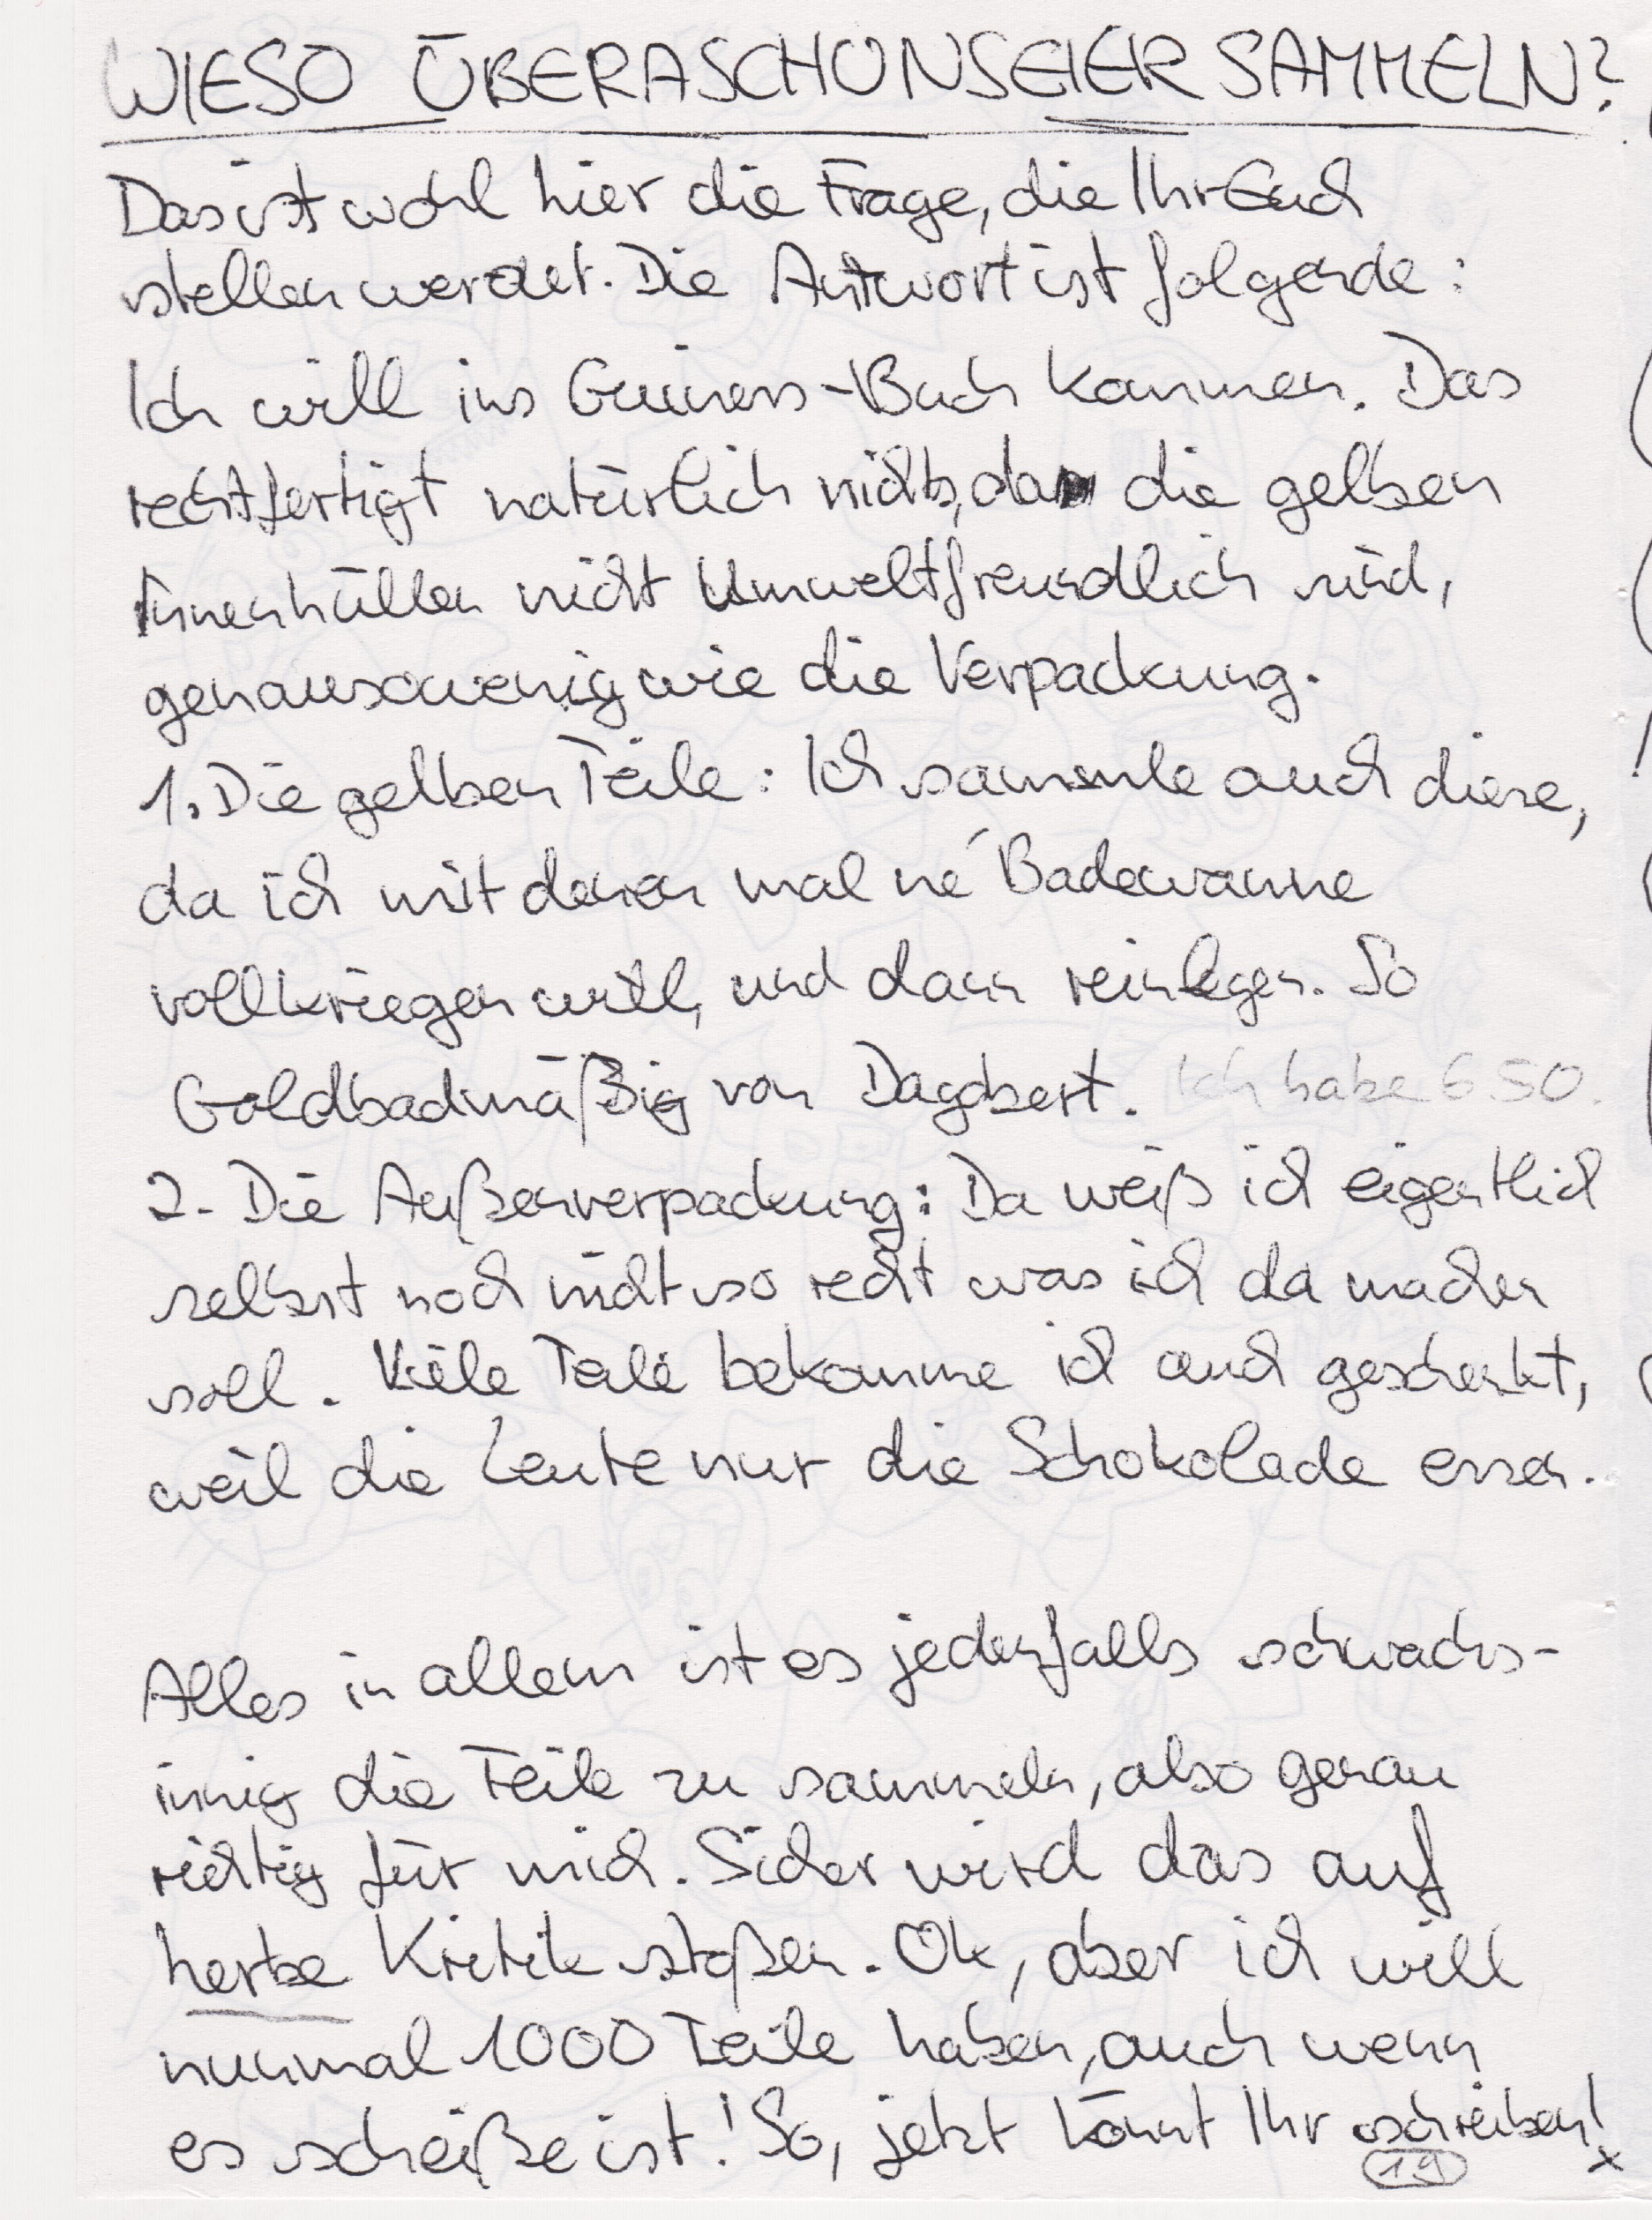 WIESO ÜBERASCHUNSEIER SAMMELN?
Das ist wohl hier die Frage, die Ihr Euch
stellen werdet. Die Antwort ist folgende:
Ich will ins Guiness-Buch kommen. Das
rechtfertigt natürlich nichts, da die gelben
Innenhüllen nicht Umweltfreundlich sind,
genausowenig wie die Verpackung.
1. Die gelben Teile: Ich sammle auch diese,
da ich mit denen mal ne´ Badewanne
vollkriegen will, und dann reinlegen. So
Goldbadmäßig von Dagobert. Ich habe 650.
2. Die Außenverpackung: Da weiß ich eigentlich
selbst noch nicht so recht was ich da machen
soll. Viele Teile bekomme ich auch geschenkt,
weil die Leute nur die Schokolade essen.
Alles in allem ist es jedenfalls schwachs-
innig die Teile zu sammeln, also genau
richtig für mich. Sicher wird das auf
herbe Kritik stoßen. Ok, aber ich will
nunmal 1000 Teile haben, auch wenn
es scheiße ist! So, jetzt könnt Ihr schreiben!
19 x